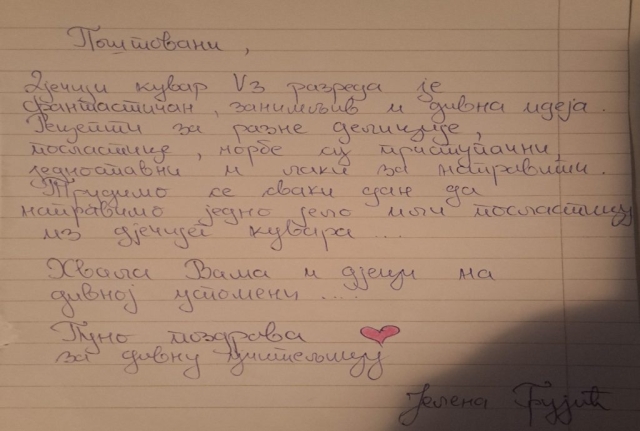 Поштовани,
Дјечији кувар V3 разреда је
фантастичан, занимљив и дивна идеја.
Рецепти за разне делиције,
посластице, чорбе су приступачни,
једноставни и лаки за направити.
Трудимо се сваки дан да
направимо једно јело или посластицу
из дјечијег кувара ...
Хвала Вама и дјеци на
дивној успомени ....
Пуно поздрава
за дивну учитељицу
Јелена